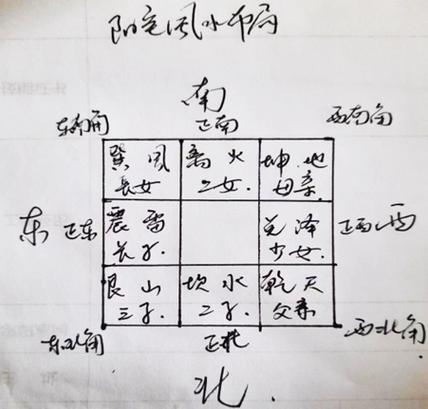 阳宅风水布局
南
东南角 正南 西南角
巽 风 离 火 坤 地
长女 二女. 母亲.
东 正东 震 雷 兑 泽 正西 西
长子. 少女.
艮 山 坎 水 乾 天
三子. 二子. 父亲
东北角 正北 西北角
北.